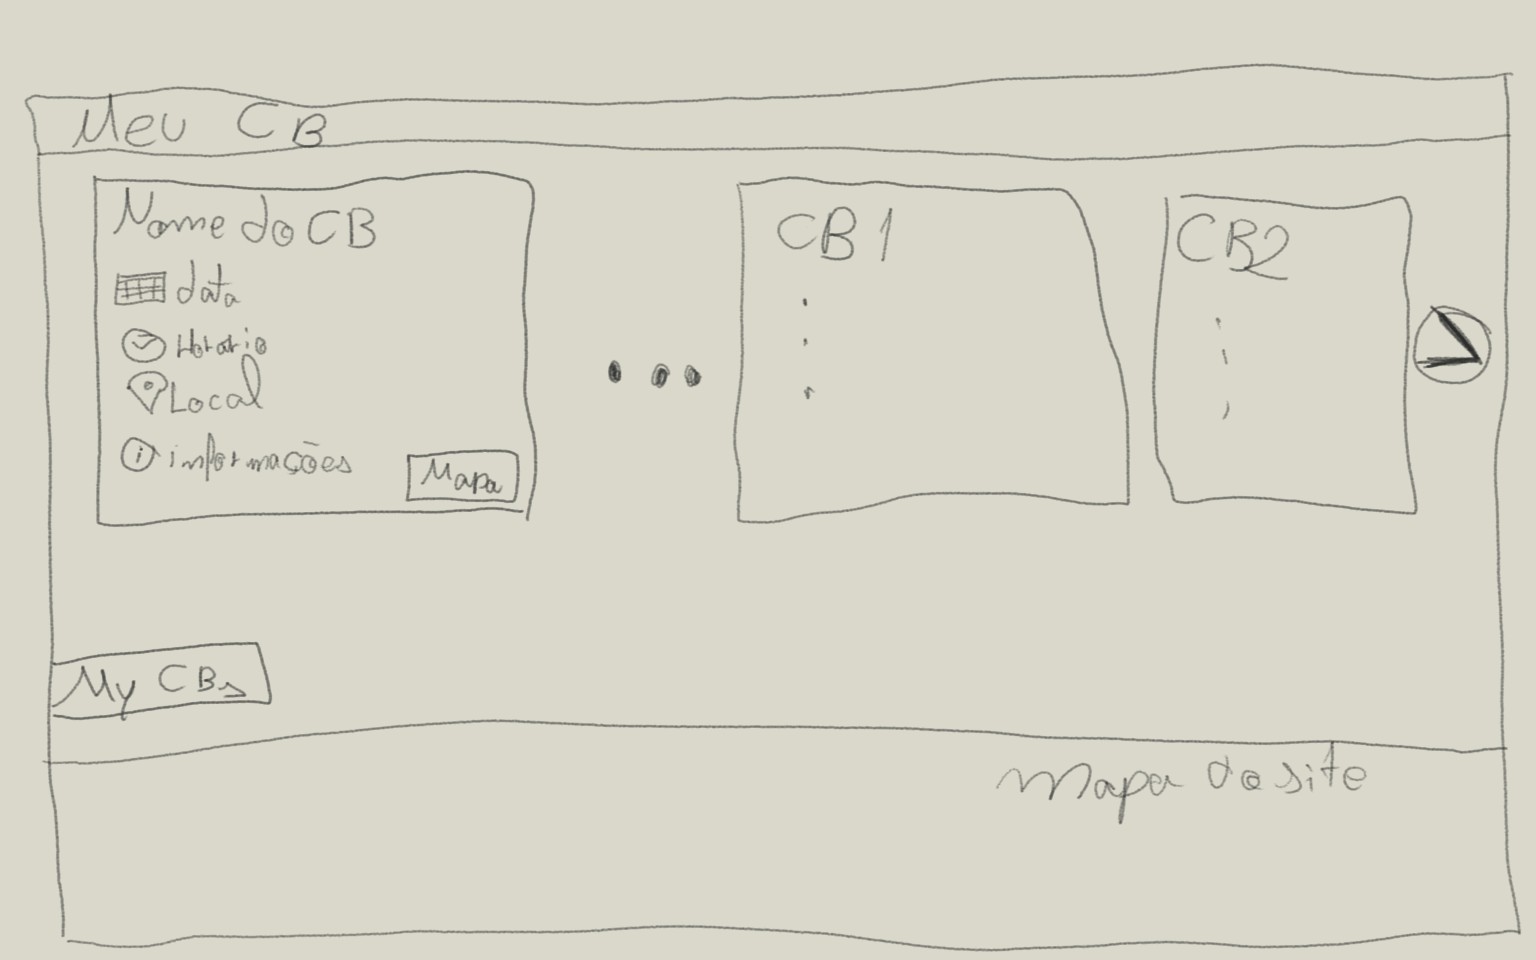 Meu CB
Nome do CB
data
Horario
Local
i informações
Mapa
CB 1
CB2
My CBs
Mapa do site